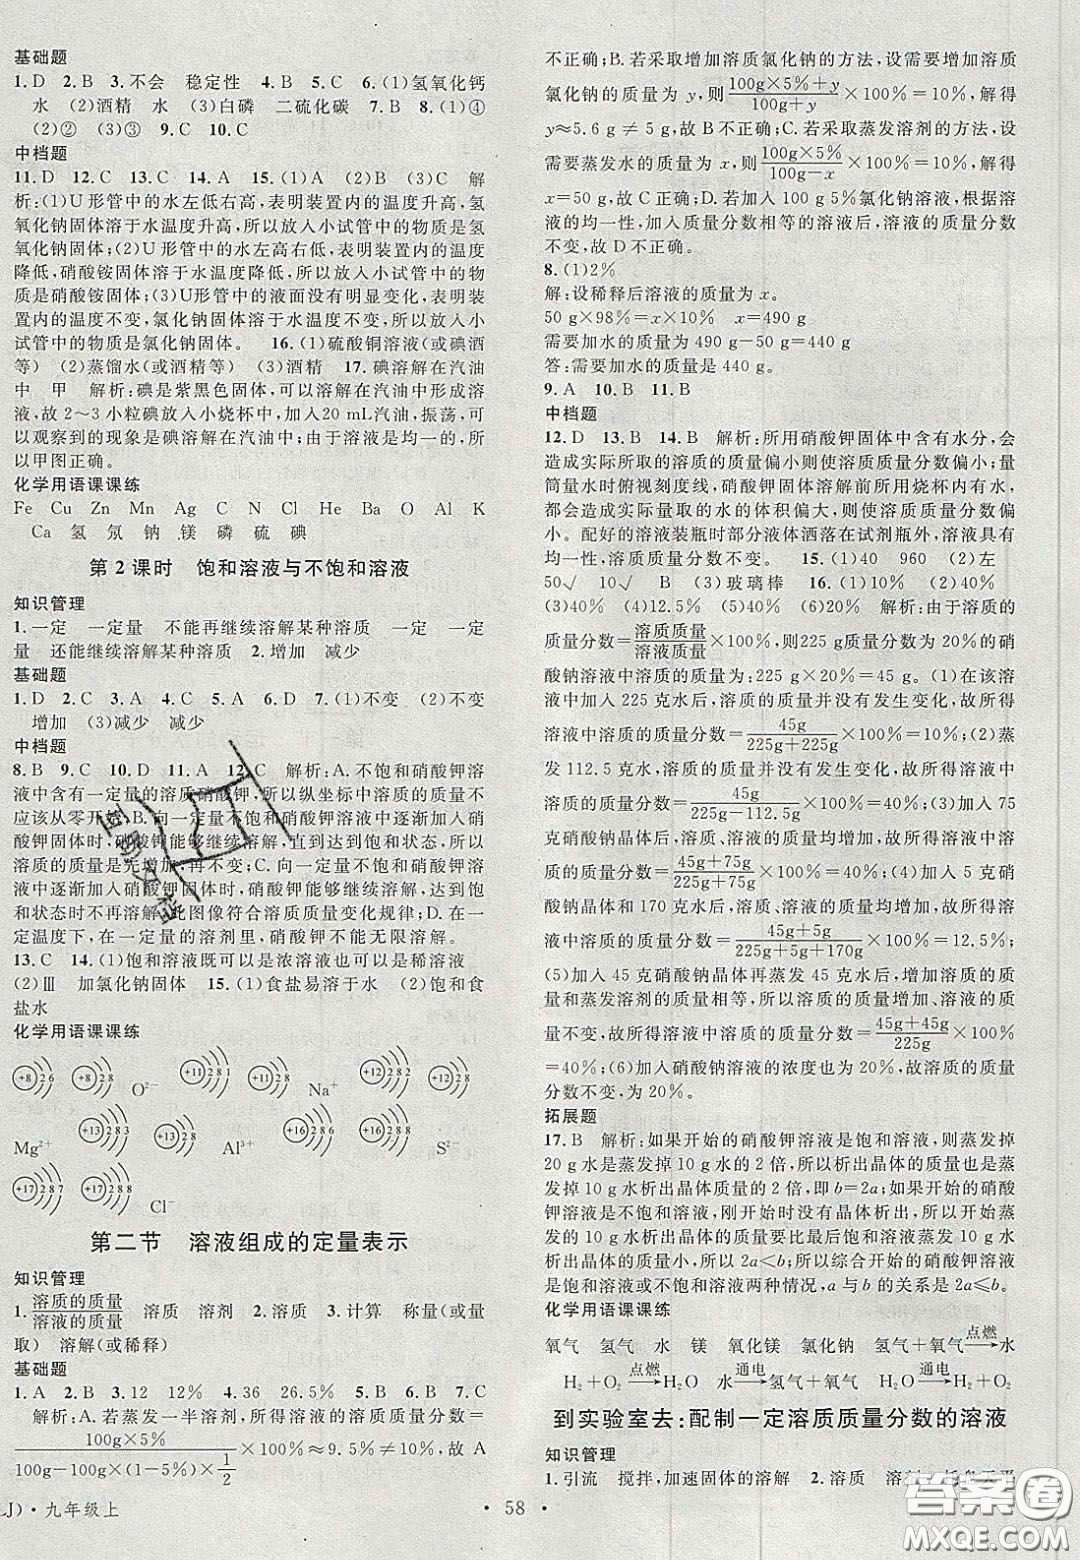 基础题
1.D 2.B 3.不会 稳定性 4.B 5.B 6.(1)氢氧化钙
水 (2)酒精 水 (3)白磷 二硫化碳 7.B 8.(1)④
(2)② (3)③ 9.C 10.C
中档题
11.D 12.C 13.C 14.A 15.(1)A (2)B (3)C 解
析:(1)U形管中的水左低右高,表明装置内的温度升高,氢
氧化钠固体溶于水温度升高,所以放入小试管中的物质是氢
氧化钠固体;(2)U形管中的水左高右低,表明装置内的温度
降低,硝酸铵固体溶于水温度降低,所以放入小试管中的物
质是硝酸铵固体;(3)U形管中的液面没有明显变化,表明装
置内的温度不变,氯化钠固体溶于水温度不变,所以放入小
试管中的物质是氯化钠固体。 16.(1)硫酸铜溶液(或碘酒
等) (2)蒸馏水(或酒精等) (3)酒精 17.碘溶解在汽油
中 甲 解析:碘是紫黑色固体,可以溶解在汽油中形成溶
液,故2~3小粒碘放入小烧杯中,加入20 mL汽油,振荡,可
以观察到的现象是碘溶解在汽油中;由于溶液是均一的,所
以甲图正确。
化学用语课课练
Fe Cu Zn Mn Ag C N Cl He Ba O Al K
Ca 氢 氖 钠 镁 磷 硫 碘
第2课时 饱和溶液与不饱和溶液
知识管理
1.一定 一定量 不能再继续溶解某种溶质 一定 一定
量 还能继续溶解某种溶质 2.增加 减少
基础题
1.D 2.C 3.A 4.C 5.A 6.D 7.(1)不变 (2)不变
增加 (3)减少 减少
中档题
8.B 9.C 10.D 11.A 12.C 解析:A.不饱和硝酸钾溶
液中含有一定量的溶质硝酸钾,所以纵坐标中溶质的质量不
应该从零开始;B.向一定量不饱和硝酸钾溶液中逐渐加入
硝酸钾固体时,硝酸钾能够继续溶解,直到达到饱和状态,所以
溶质的质量是先增加,再不变;C.向一定量不饱和硝酸钾溶液
中逐渐加入硝酸钾固体时,硝酸钾能够继续溶解,直到达到饱
和状态时不再溶解,此图像符合溶质质量变化规律;D.在一
定温度下,在一定量的溶剂里,硝酸钾不能无限溶解。
13.C 14.(1)饱和溶液既可以是浓溶液也可以是稀溶液
(2)Ⅲ 加氯化钠固体 15.(1)食盐易溶于水 (2)饱和食
盐水
化学用语课课练
+8 2 6 +8 2 8 O²⁻ +11 2 8 1 +11 2 8 Na⁺ +12 2 8 2 +12 2 8
Mg²⁺ +13 2 8 3 +13 2 8 Al³⁺ +16 2 8 6 +16 2 8 8 S²⁻
+17 2 8 7 +17 2 8 8 Cl⁻
第二节 溶液组成的定量表示
知识管理
1.溶质的质量/溶液的质量 溶质 溶剂 2.溶质 3.计算 称量(或量
取) 溶解(或稀释)
基础题
1.A 2.B 3.12 12% 4.36 26.5% 5.B 6.B 7.C
解析:A.若蒸发一半溶剂,所得溶液的溶质质量分数=
100g×5%/(100g−100g×(1−5%)×1/2)×100%≈9.5%≠10%,故A
不正确;B.若采取增加溶质氯化钠的方法,设需要增加溶质
氯化钠的质量为y,则(100g×5%+y)/(100g+y)×100%=10%,解得
y≈5.6 g≠5 g,故B不正确;C.若采取蒸发溶剂的方法,设
需要蒸发水的质量为x,则(100g×5%)/(100g−x)×100%=10%,解得
x=50 g,故C正确;D.若加入100 g 5%氯化钠溶液,根据溶
液的均一性,加入质量分数相等的溶液后,溶液的质量分数
不变,故D不正确。
8.(1)2%
解:设稀释后溶液的质量为x。
50 g×98%=x×10% x=490 g
需要加水的质量为490 g−50 g=440 g
答:需要加水的质量是440 g。
9.A 10.B 11.B
中档题
12.D 13.B 14.B 解析:所用硝酸钾固体中含有水分,会
造成实际所取的溶质的质量偏小则使溶质质量分数偏小;量
筒量水时俯视刻度线,硝酸钾固体溶解前所用烧杯内有水,都
会造成实际量取的水的体积偏大,则使溶质质量分数偏
小。配好的溶液装瓶时部分液体洒落在试剂瓶外,溶液具有
均一性,溶质质量分数不变。 15.(1)40 960 (2)左
50√ 10√ (3)玻璃棒 16.(1)10% (2)40%
(3)40% (4)12.5% (5)40% (6)20% 解析:由于溶质的
质量分数=溶质质量/溶液质量×100%,则225 g质量分数为20%的硝
酸钠溶液中溶质的质量为:225 g×20%=45 g。(1)在该溶
液中加入225克水后,溶质的质量并没有发生变化,故所得
溶液中溶质的质量分数=45g/(225g+225g)×100%=10%;(2)蒸
发112.5克水后,溶质的质量并没有发生变化,故所得溶液
中溶质的质量分数=45g/(225g−112.5g)×100%=40%;(3)加入75
克硝酸钠晶体后,溶质、溶液的质量均增加,故所得溶液中溶
质的质量分数=(45g+75g)/(225g+75g)×100%=40%;(4)加入5克硝
酸钠晶体和170克水后,溶质、溶液的质量均增加,故所得溶
液中溶质的质量分数=(45g+5g)/(225g+5g+170g)×100%=12.5%;
(5)加入45克硝酸钠晶体再蒸发45克水后,增加溶质的质
量和蒸发溶剂的质量相等,所以溶液的溶质质量增加、溶液的质
量不变,故所得溶液中溶质的质量分数=(45g+45g)/225g×100%
=40%;(6)加入硝酸钠溶液的浓度也为20%,故溶质的质量
分数不变,为20%。
拓展题
17.B 解析:如果开始的硝酸钾溶液是饱和溶液,则蒸发掉
20 g水是蒸发掉10 g水的2倍,所以析出晶体的质量为蒸
发掉10 g水时析出晶体的质量的2倍,即b=2a;如果开始的硝酸
钾溶液是不饱和溶液,刚开始时没有硝酸钾晶体析出,所以
蒸发20 g水析出晶体的质量要比最后析出的蒸发10 g水
析出晶体的质量的2倍还要多,所以综合开始的硝酸钾溶液
是饱和溶液或不饱和溶液两种情况,a与b的关系是2a≤b。
化学用语课课练
氧气 氢气 水 镁 氧化镁 氯化钠 氢气+氧气—点燃→水
H₂+O₂—点燃→H₂O 水—通电→氢气+氧气 H₂O—通电→H₂+O₂
到实验室去:配制一定溶质质量分数的溶液
知识管理
1.引流 搅拌,加速固体的溶解 2.溶质 溶剂 托盘天平
LJ)·九年级上
·58·
答案圈
MXQE.COM